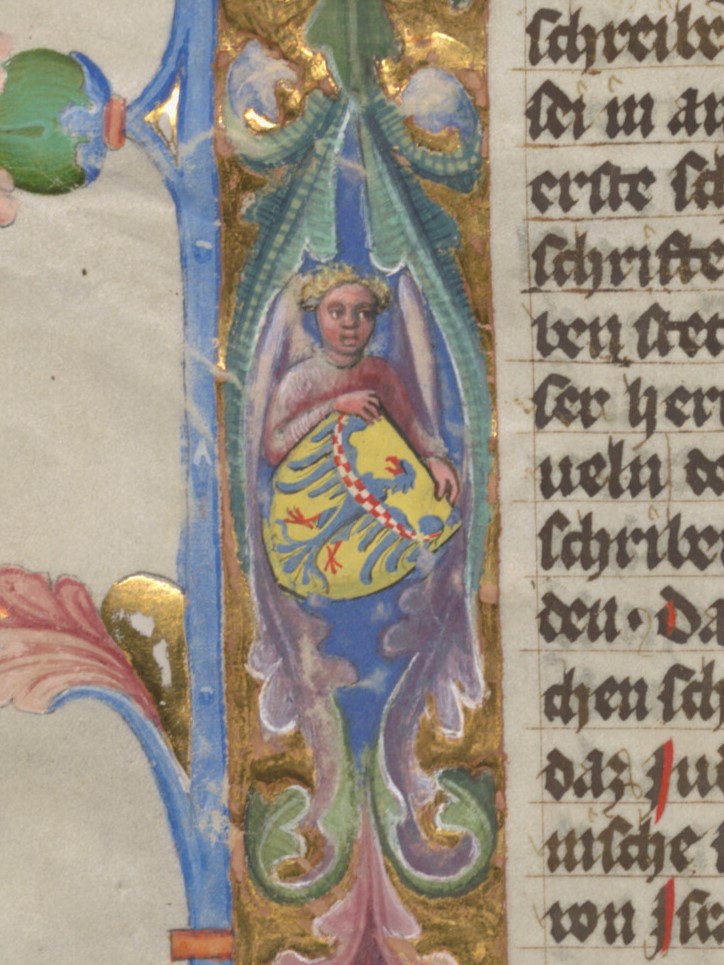 schreibe
sei in an
erste sch
schrifte
ben ster
ser herr
ueln de
schriber
den · Da
chen sch
daz Jud
nische i
von Isr